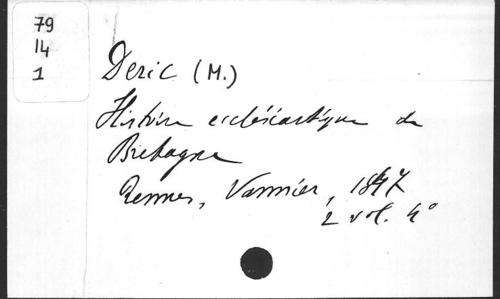 79
14
1
Deric (M.)
Histoire ecclésiastique de
Bretagne
Rennes, Vannier, 1847
2 vol. 4°